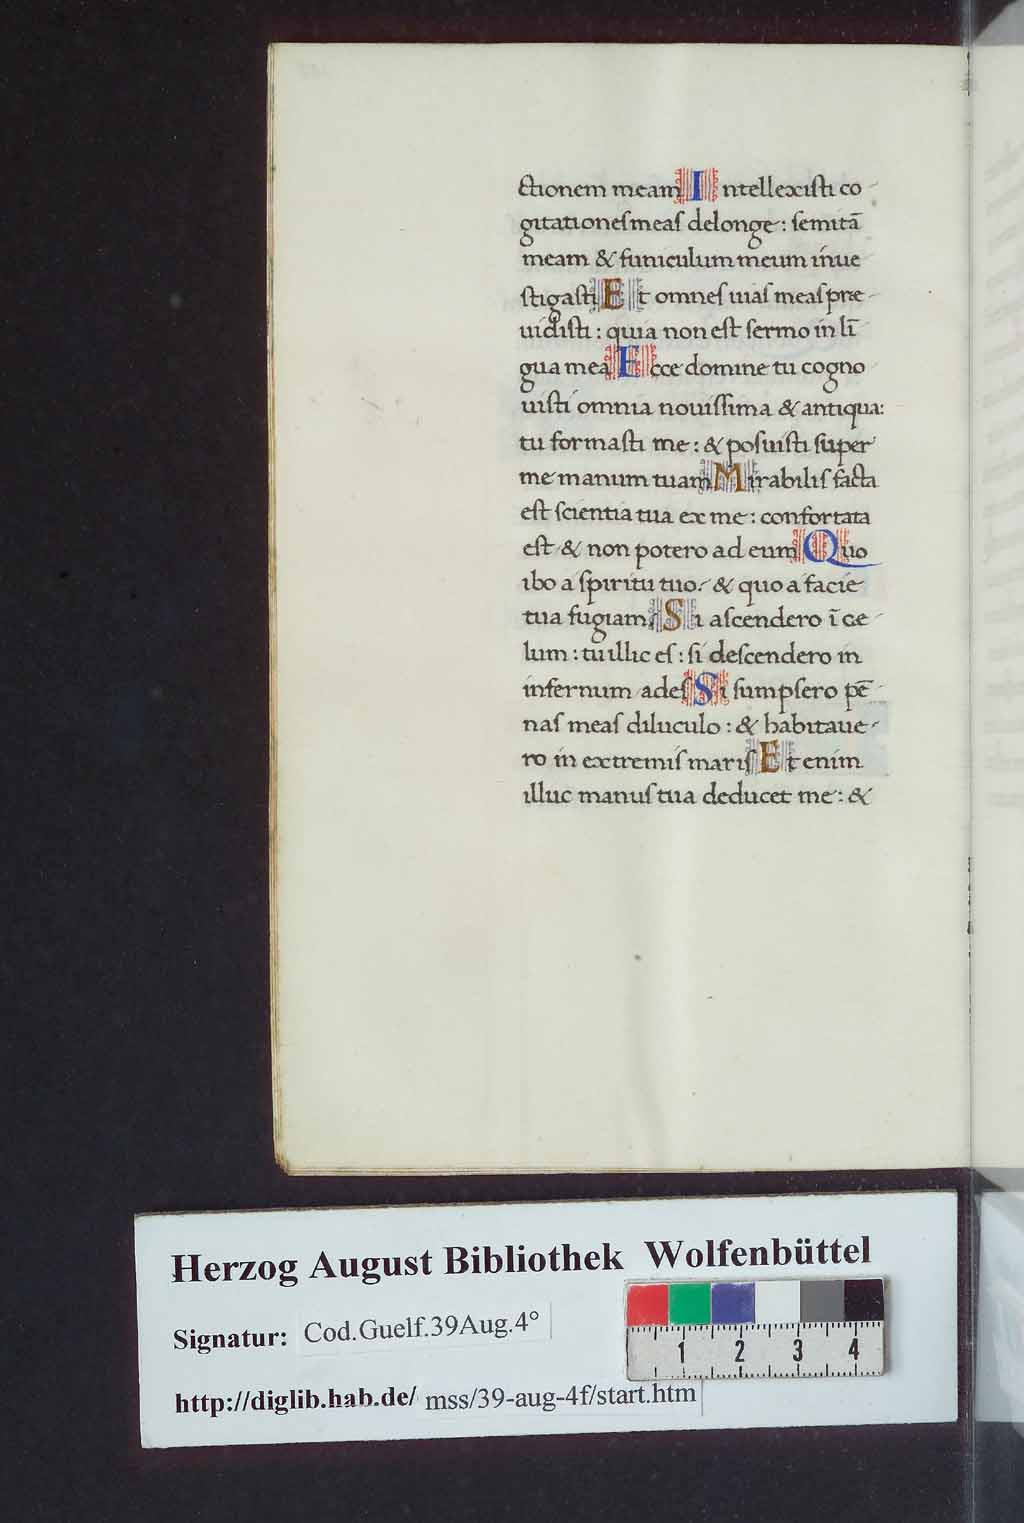 ctionem meam Intellexisti co-
gitationeſ meaſ de longe: ſemitā
meam & funiculum meum inue
ſtigaſti Et omneſ uiaſ meaſ præ-
uidiſti: quia non eſt ſermo in lī
gua mea Ecce domine tu cogno
uiſti omnia nouiſſima & antiqua:
tu formaſti me: & poſuiſti ſuper
me manum tuam Mirabiliſ facta
eſt ſcientia tua ex me: confortata
eſt & non potero ad eum Quo
ibo a ſpiritu tuo: & quo a facie
tua fugiam? Si aſcendero ī ce-
lum: tu illic eſ: ſi deſcendero in
infernum adeſ Si ſumpſero pē-
naſ meaſ diluculo: & habitaue-
ro in extremiſ mariſ Etenim
illuc manuſ tua deducet me: &
Herzog August Bibliothek Wolfenbüttel
Signatur: Cod.Guelf.39Aug.4°
1 2 3 4
http://diglib.hab.de/ mss/39-aug-4f/start.htm